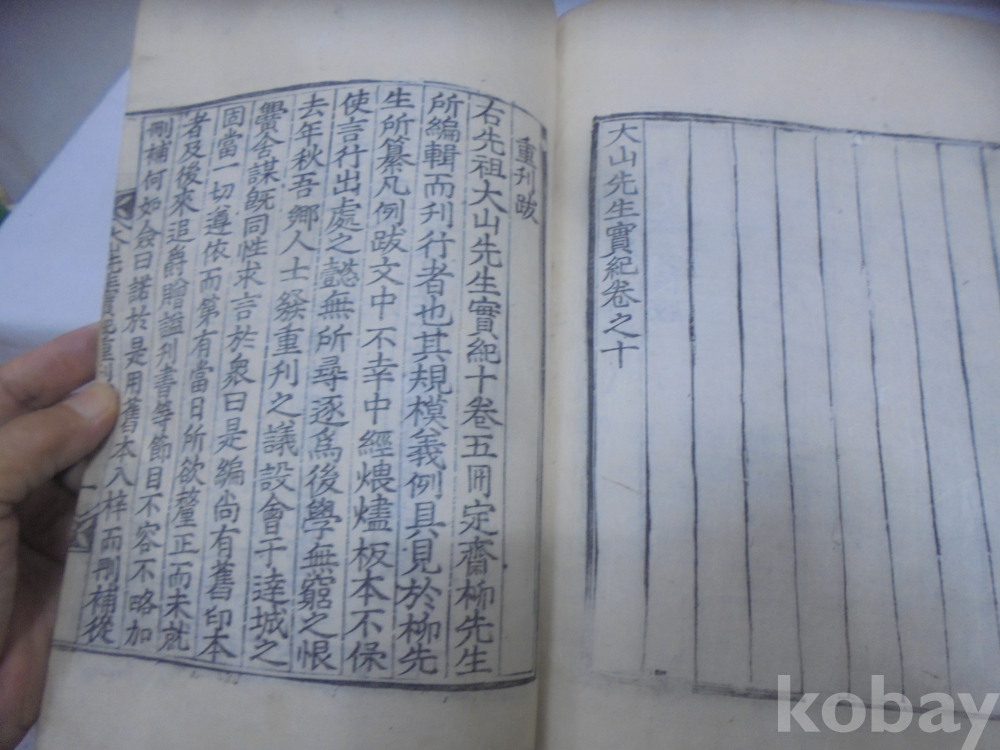 大山先生實紀卷之十
重刊跋
右先祖大山先生實紀十卷五冊定齋柳先生
所編輯而刊行者也其規模義例具見於柳先
生所纂凡例跋文中不幸中經煨燼板本不保
使言行出處之懿無所尋逐爲後學無窮之恨
去年秋吾鄉人士發重刊之議設會于達城之
黌舍謀旣同性求言於衆曰是編尙有舊印本
固當一切遵依而第有當日所欲釐正而未就
者及後來追爵贈謚刊書等節目不容不略加
刪補何如僉曰諾於是用舊本入梓而刪補從
kobay